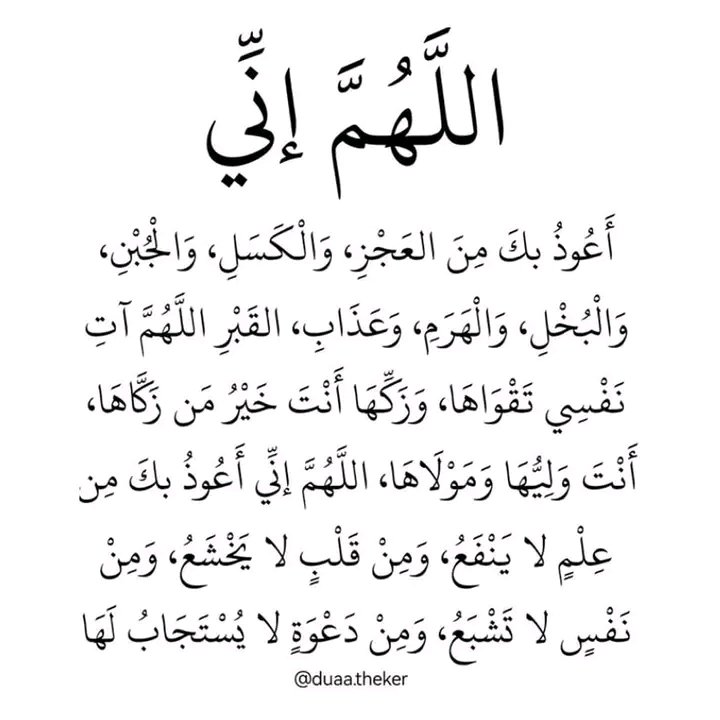 اللَّهُمَّ إنِّي
أَعُوذُ بكَ مِنَ العَجْزِ، وَالْكَسَلِ، وَالْجُبْنِ،
وَالْبُخْلِ، وَالْهَرَمِ، وَعَذَابِ، القَبْرِ اللَّهُمَّ آتِ
نَفْسِي تَقْوَاهَا، وَزَكِّهَا أَنْتَ خَيْرُ مَن زَكَّاهَا،
أَنْتَ وَلِيُّهَا وَمَوْلَاهَا، اللَّهُمَّ إنِّي أَعُوذُ بكَ مِن
عِلْمٍ لا يَنْفَعُ، وَمِنْ قَلْبٍ لا يَخْشَعُ، وَمِنْ
نَفْسٍ لا تَشْبَعُ، وَمِنْ دَعْوَةٍ لا يُسْتَجَابُ لَهَا
@duaa.theker